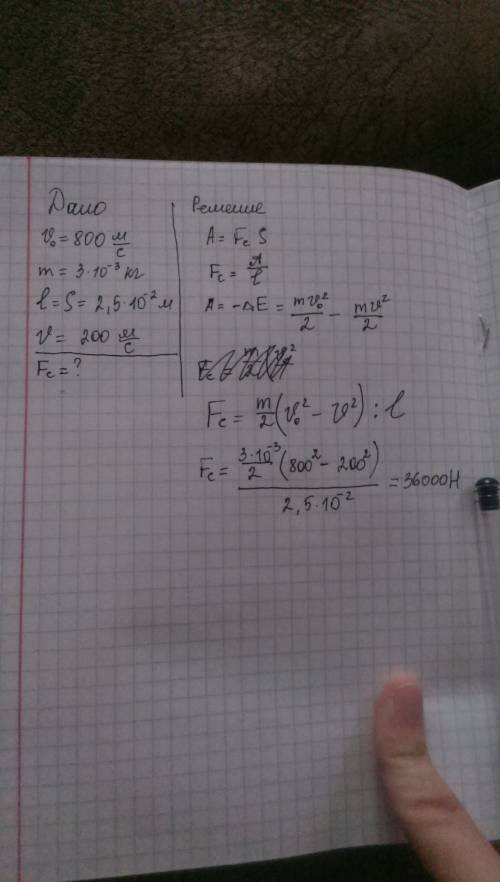 Дано
v₀ = 800 м/с
m = 3·10⁻³ кг
l = S = 2,5·10⁻² м
v = 200 м/с
Fc = ?
Решение
A = Fc S
Fc = A/l
A = -ΔE = mv₀²/2 - mv²/2
Fc = m/2 (v₀² - v²) : l
Fc = (3·10⁻³/2 (800² - 200²))/(2,5·10⁻²) = 36000Н